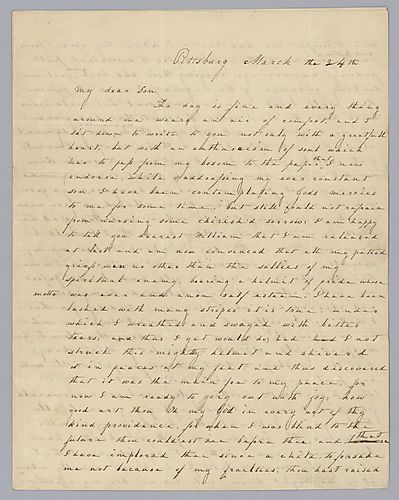 Pittsburg March the 24th
My dear Son
The day is fine and every thing
around me wears an air of comfort and I
sit down to write to you not only with a greatfull
heart but with an enthusiasm of soul which
has to pass from my bosom to the paper that I now
endorse, while addressing my ever constant
son. I have been contemplating Gods mercies
to me for some time, but still could not refrain
from nursing some cherish'd sorrow; I am happy
to tell you dearest William that I am releaced
at last and am now convinced that all my
griefs were no other than the sallies of my
spiritual enemy, bearing a helmet of pride whose
motto was ever and anon self esteem. I have been
lashed with many stripes it is true; under
which I wreathed and swayed with bitter
tears, and thus I yet would do, had I not
struck this mighty helmet and shiver'd
it in peaces at my feet and thus discovered
that it was the main foe to my peace, for
now I am ready to cry out with joy, how
good art thou Oh my God in every act of thy
kind providence, for when I was blind to the
future thou couldest see before me, and
I have implored thee since a child to forsake
me not because of my frailties, thou hast raised